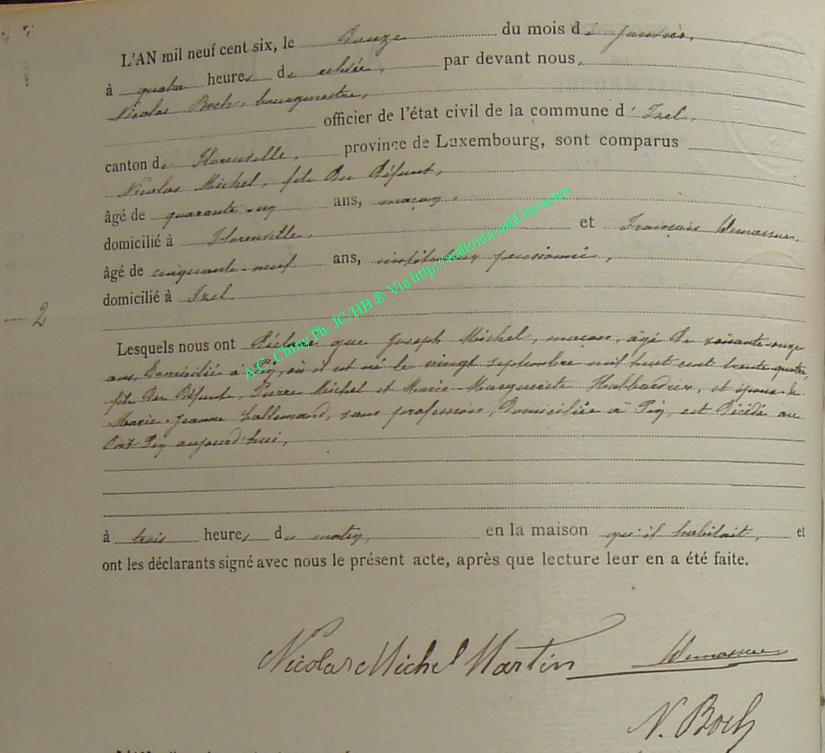 L'AN mil neuf cent six, le douze du mois de janvier,
à quatre heures de relevée, par devant nous,
Nicolas Boch, bourgmestre,
officier de l'état civil de la commune d'Izel,
canton de Florenville, province de Luxembourg, sont comparus
Nicolas Michel, fils du défunt,
âgé de quarante-un ans, maçon,
domicilié à Florenville, et François
âgé de cinquante-neuf ans, instituteur pensionné,
domicilié à Izel
2
Lesquels nous ont déclaré que Joseph Michel, maçon, âgé de soixante-onze
ans, domicilié à Pin, où il est né le vingt septembre mil huit cent trente quatre,
fils des défunts, Pierre Michel et Marie-Marguerite et époux de
Marie-Jeanne Lallemand, sans profession, domiciliée à Pin, est décédé au
dit Pin aujourd'hui,
à trois heures du matin, en la maison qu'il habitait, et
ont les déclarants signé avec nous le présent acte, après que lecture leur en a été faite.
Nicolas Michel Martin
N. Boch
A.C. Chiny Ph. JC HB ® Via http://wallonia-asbl.be/actes